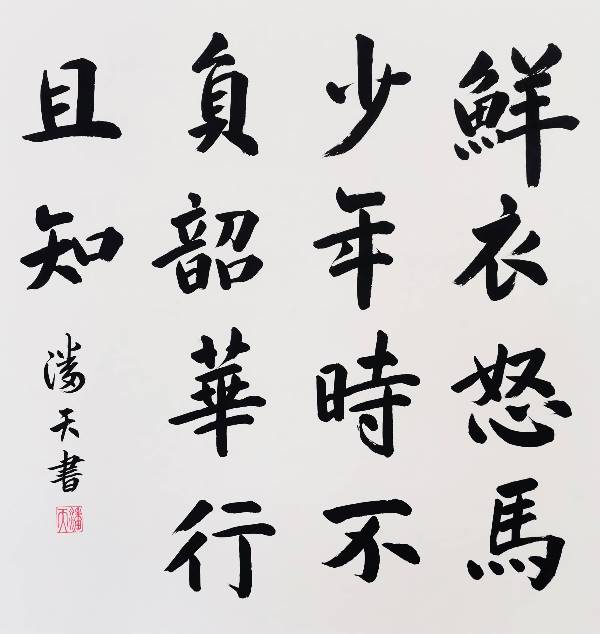 鮮衣怒馬
少年時不
負韶華行
且知
潘天書
潘天